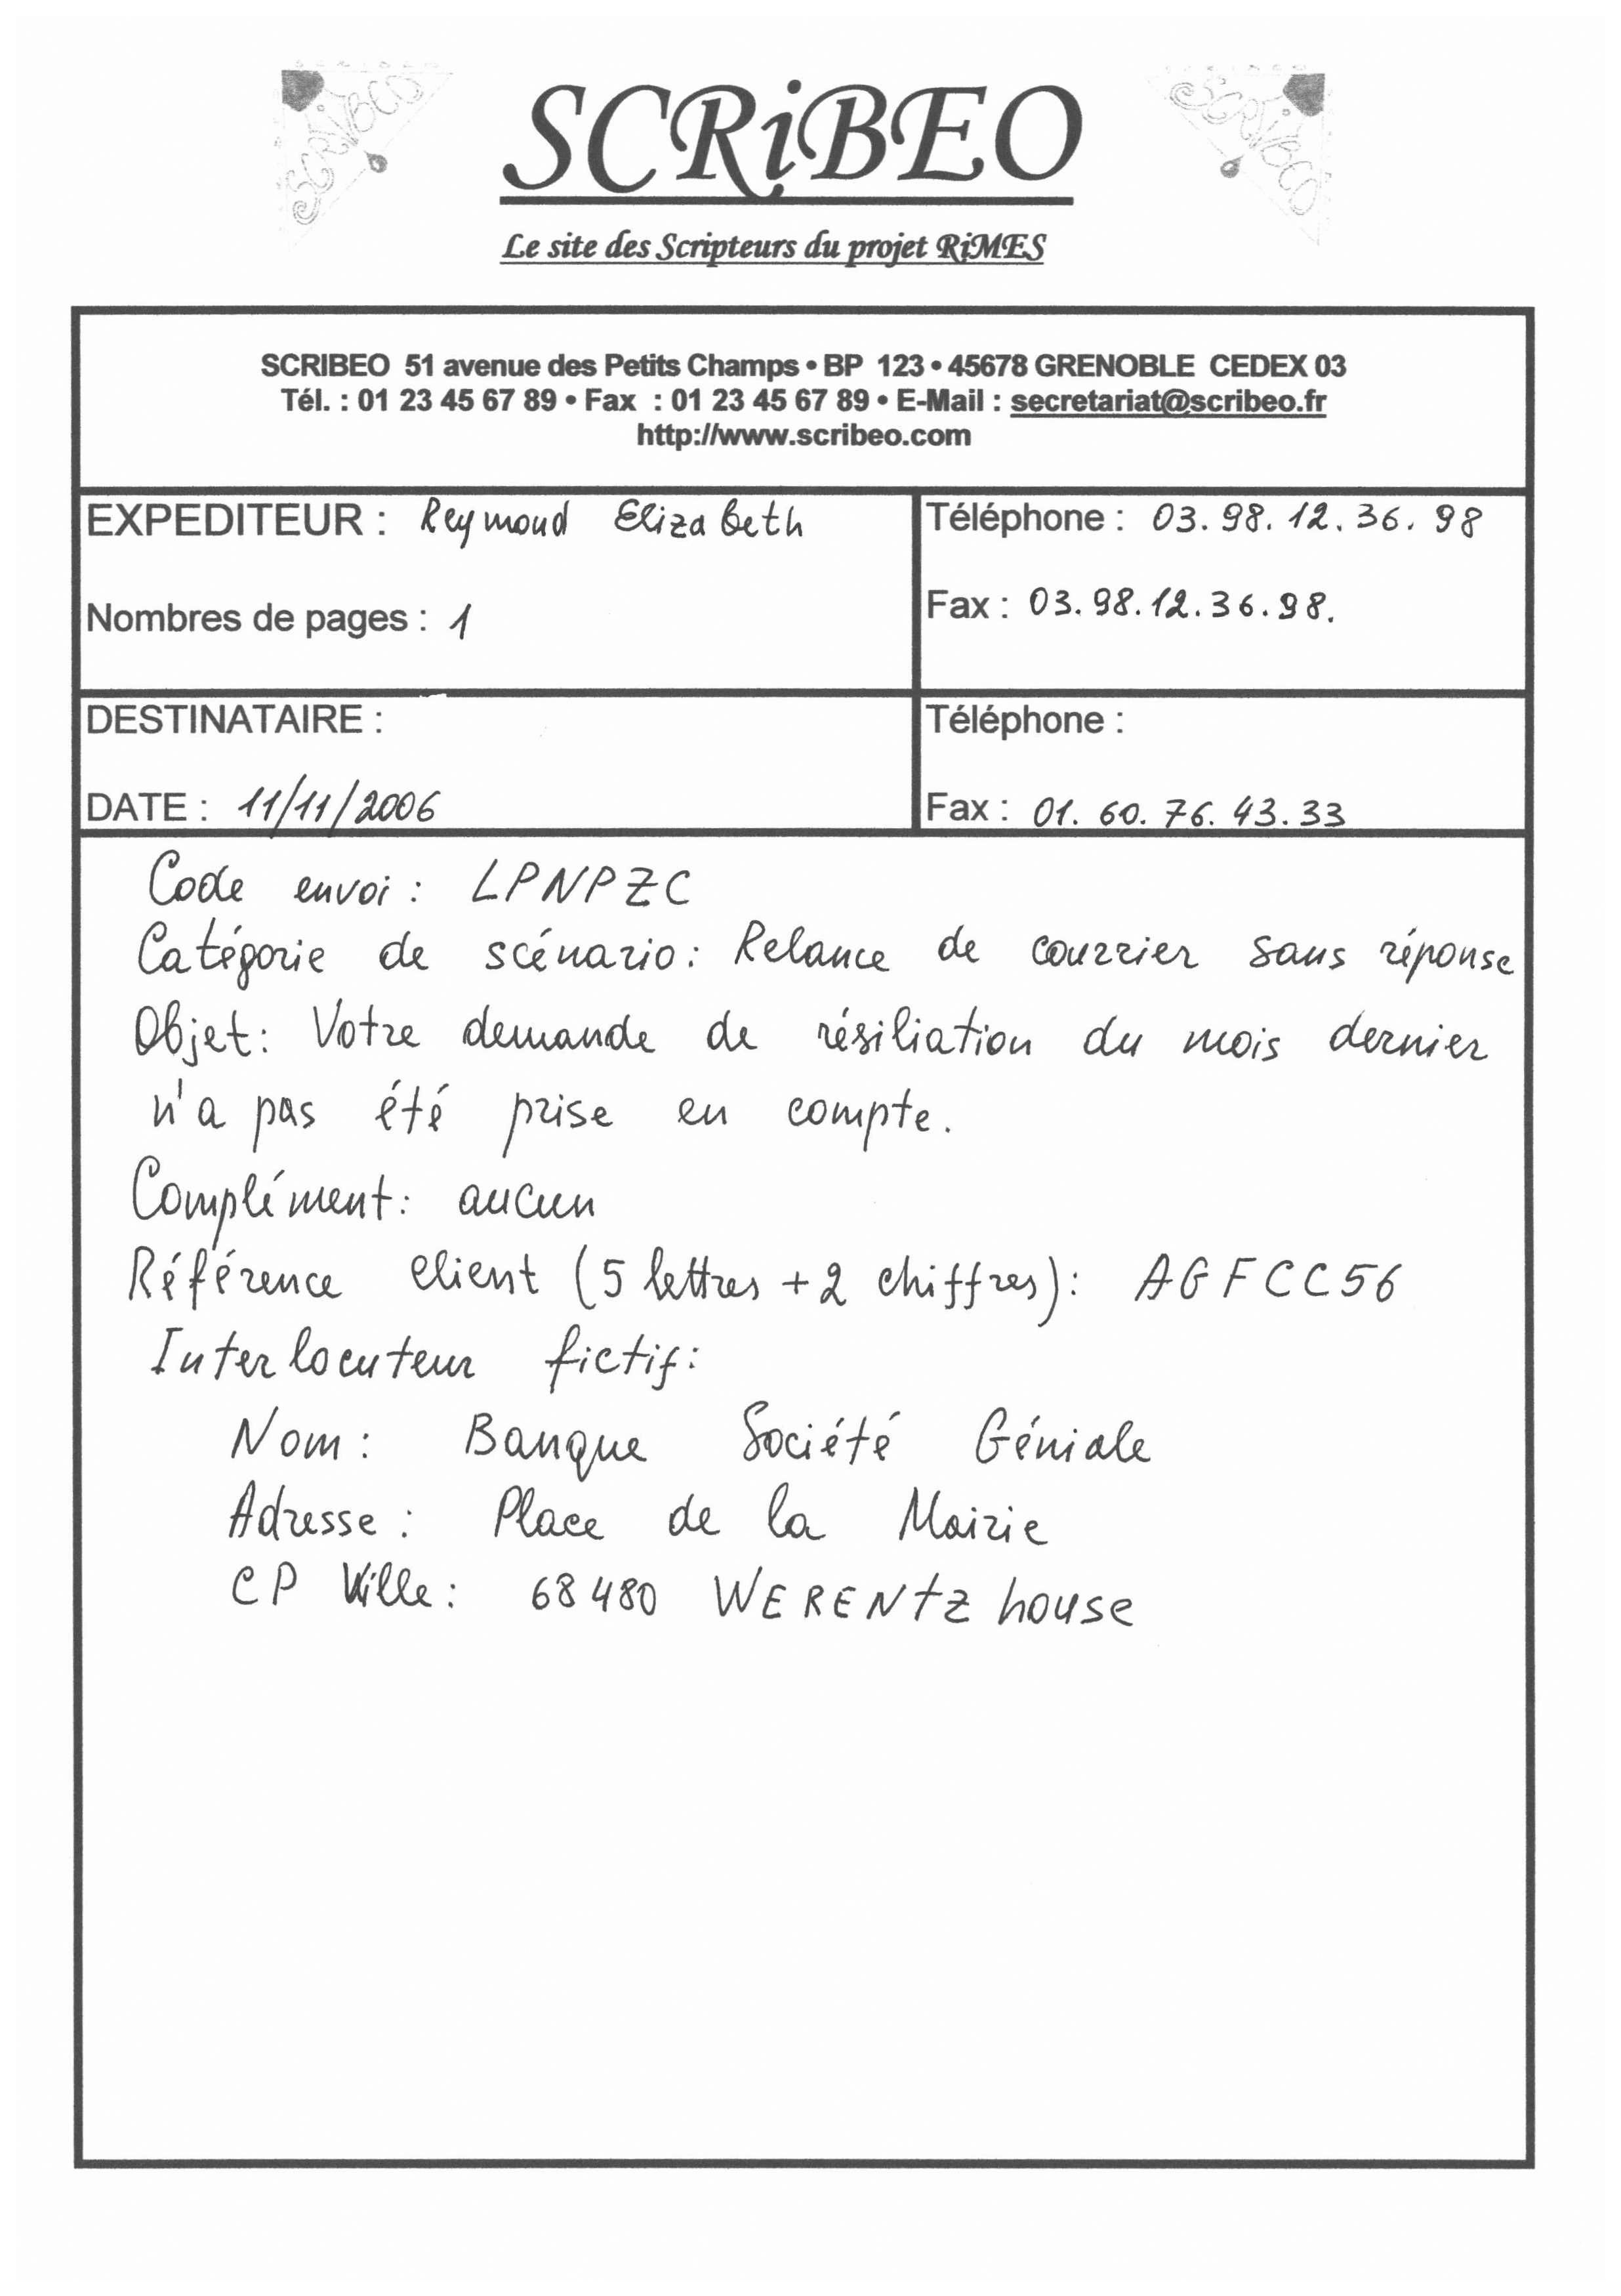 SCRiBEO
Le site des Scripteurs du projet RiMES
SCRIBEO 51 avenue des Petits Champs • BP 123 • 45678 GRENOBLE CEDEX 03
Tél. : 01 23 45 67 89 • Fax : 01 23 45 67 89 • E-Mail : secretariat@scribeo.fr
http://www.scribeo.com
EXPEDITEUR : Reymond Elizabeth
Téléphone : 03. 98. 12. 36. 98
Nombres de pages : 1
Fax : 03.98.12.36.98.
DESTINATAIRE :
Téléphone :
DATE : 11/11/2006
Fax : 01. 60. 76. 43. 33
Code envoi : LPNPZC
Catégorie de scénario : Relance de courrier sans réponse
Objet : Votre demande de résiliation du mois dernier
n'a pas été prise en compte.
Complément : aucun
Référence client (5 lettres + 2 chiffres) : AGFCC56
Interlocuteur fictif :
Nom : Banque Société Géniale
Adresse : Place de la Mairie
CP Ville : 68480 WERENtZ house